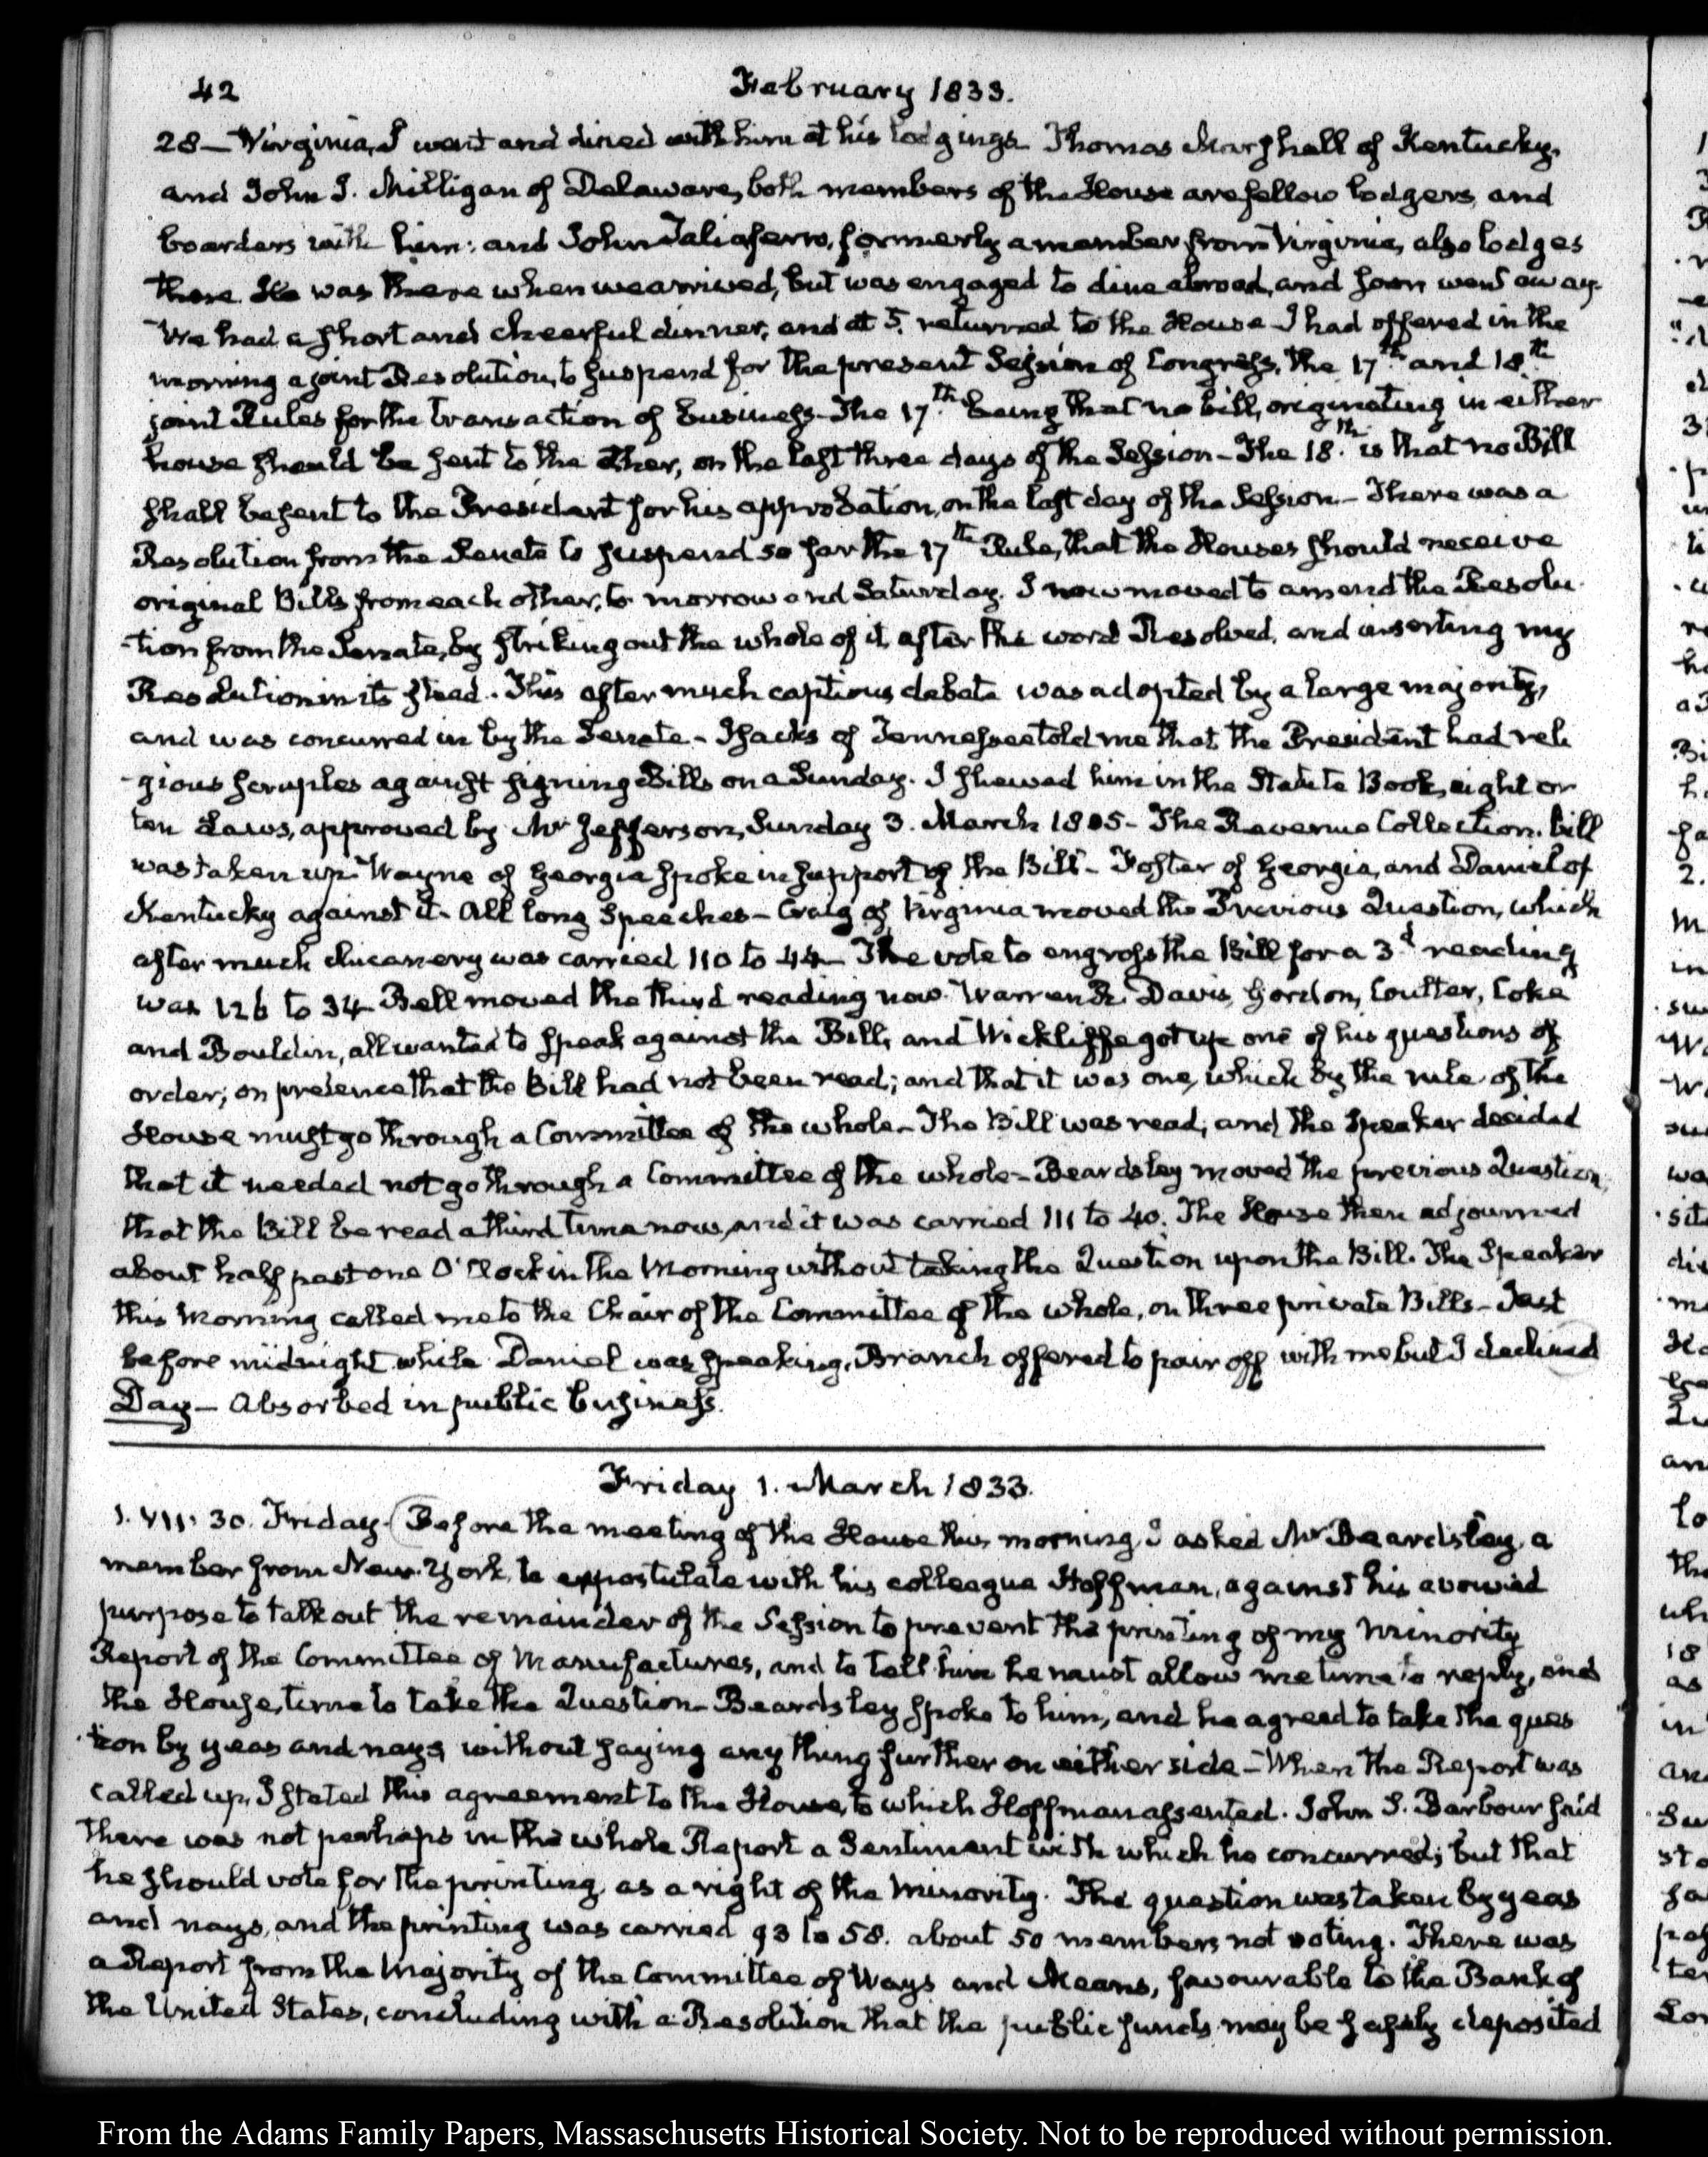 42
February 1833.
28 – Virginia, I went and dined with him at his lodgings. Thomas Marshall of Kentucky,
and John J. Milligan of Delaware, both members of the House are fellow lodgers and
boarders with him: and John Taliaferro, formerly a member from Virginia, also lodges
there. He was there when we arrived, but was engaged to dine abroad, and soon went away.
We had a short and cheerful dinner, and at 5. returned to the House – I had offered in the
morning a joint Resolution, to suspend for the present Session of Congress, the 17th and 18th
joint Rules for the transaction of business – The 17th being that no bill, originating in either
house should be sent to the other, on the last three days of the Session – The 18th is that no Bill
shall be sent to the President for his approbation, on the last day of the Session – There was a
Resolution from the Senate to suspend so far the 17th Rule, that the Houses should receive
original Bills from each other, to morrow and Saturday. I now moved to amend the Resolu-
-tion from the Senate, by striking out the whole of it after the word Resolved, and inserting my
Resolution in its stead. This after much captious debate was adopted by a large majority,
and was concurred in by the Senate – Isacks of Tennessee told me that the President had reli-
-gious scruples against signing Bills on a Sunday. I shewed him in the Statute Book, eight or
ten Laws, approved by Mr Jefferson, Sunday 3. March 1805 – The Revenue Collection bill
was taken up. Wayne of Georgia spoke in support of the Bill – Foster of Georgia, and Daniel of
Kentucky against it – All long Speeches – Craig of Virginia moved the Previous Question, which
after much chicanery was carried 110 to 44 – The vote to engross the Bill for a 3d reading
was 126 to 34 – Bell moved the third reading now. Warren R. Davis, Gordon, Coulter, Coke
and Bouldin, all wanted to speak against the Bill, and Wickliffe got up one of his questions of
order; on pretence that the Bill had not been read; and that it was one, which by the rule of the
House must go through a Committee of the whole – The Bill was read; and the Speaker decided
that it needed not go through a Committee of the whole – Beardsley moved the previous Question;
that the Bill be read a third time now, and it was carried 111 to 40. The House then adjourned
about half past one O'Clock in the Morning without taking the Question upon the Bill. The Speaker
this Morning called me to the Chair of the Committee of the whole, on three private Bills – Just
before midnight while Daniel was speaking, Branch offered to pair off with me but I declined
Day – Absorbed in public business.
Friday 1. March 1833.
1. VII. 30. Friday. Before the meeting of the House this morning, I asked Mr Beardsley, a
member from New-York, to expostulate with his colleague Hoffman, against his avowed
purpose to talk out the remainder of the Session to prevent the printing of my Minority
Report of the Committee of Manufactures, and to tell him he must allow me time to reply, and
the House, time to take the Question – Beardsley spoke to him, and he agreed to take the ques
-tion by yeas and nays, without saying any thing further on either side – When the Report was
called up, I stated this agreement to the House, to which Hoffman assented. John S. Barbour said
there was not perhaps in the whole Report a Sentiment with which he concurred; but that
he should vote for the printing, as a right of the Minority. The question was taken by yeas
and nays, and the printing was carried 93 to 58. about 50 members not voting. There was
a Report from the Majority of the Committee of Ways and Means, favourable to the Bank of
the United States, concluding with a Resolution that the public funds may be safely deposited
From the Adams Family Papers, Massachusetts Historical Society. Not to be reproduced without permission.